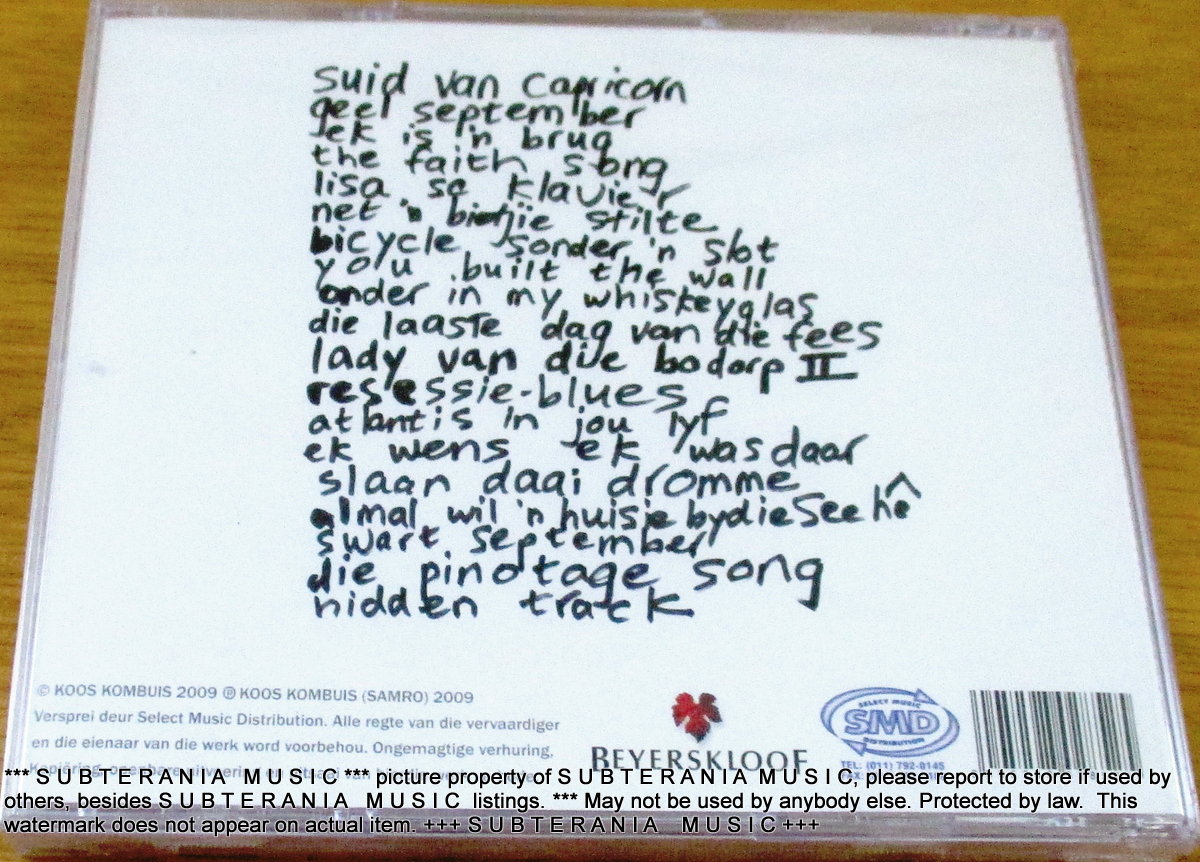 suid van capricorn
geel september
ek is 'n brug
the faith song
lisa se klavier
net 'n bietjie stilte
bicycle sonder 'n slot
you built the wall
onder in my whiskeyglas
die laaste dag van die fees
lady van die bodorp II
resessie-blues
atlantis in jou lyf
ek wens ek was daar
slaan daai dromme
almal wil 'n huisie by die see hê
swart september
die pinotage song
hidden track
© KOOS KOMBUIS 2009 ℗ KOOS KOMBUIS (SAMRO) 2009
Versprei deur Select Music Distribution. Alle regte van die vervaardiger
en die eienaar van die werk word voorbehou. Ongemagtige verhuring,
BEYERSKLOOF
SELECT MUSIC
SMD
DISTRIBUTION
TEL: (011) 792-0145
*** S U B T E R A N I A M U S I C *** picture property of S U B T E R A N I A M U S I C, please report to store if used by
others, besides S U B T E R A N I A M U S I C listings. *** May not be used by anybody else. Protected by law. This
watermark does not appear on actual item. +++ S U B T E R A N I A M U S I C +++